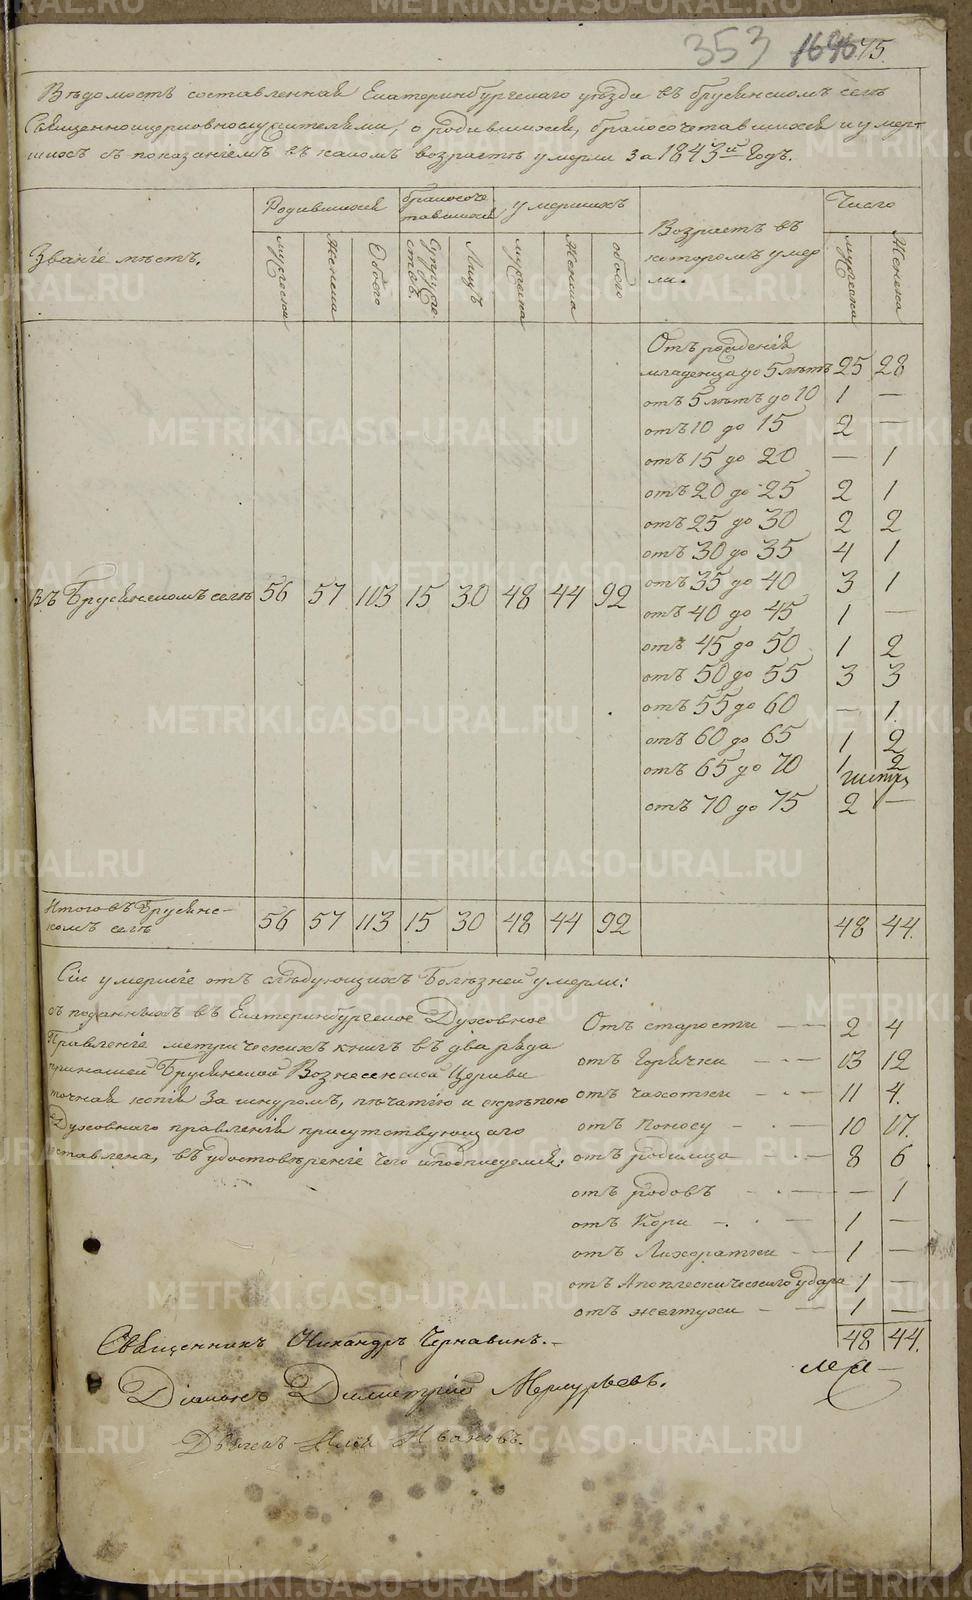 353 1646 75.
Вѣдомость составленная Екатеринбургскаго уѣзда въ Брусянскомъ селѣ
Священноцерковнослужителями, о родившихся, бракосочетавшихся и умер-
шихъ съ показаніемъ въ какомъ возрастѣ умерли за 1843й Годъ.
Званіе мѣстъ.
Родившихся
мужеска
Женска
Обоего
бракосоче-
тавшихся
Супруже-
ствъ.
Лицъ
умершихъ
мужеска
Женска
обоего
Возрастъ въ
которомъ умер
ли.
Число
мужеска
Женска
Отъ рожденія
младенца до 5 лѣтъ 25 28
отъ 5 лѣтъ до 10 1 —
отъ 10 до 15 2 —
отъ 15 до 20 — 1
отъ 20 до 25 2 1
отъ 25 до 30 2 2
отъ 30 до 35 4 1
отъ 35 до 40 3 1
въ Брусянскомъ селѣ 56 57 103 15 30 48 44 92
отъ 40 до 45 1 —
отъ 45 до 50 1 2
отъ 50 до 55 3 3
отъ 55 до 60 — 1.
отъ 60 до 65 1 2
отъ 65 до 70 1 2
отъ 70 до 75 2 —
Итого въ Брусянс-
комъ селѣ 56 57 113 15 30 48 44 92 48 44.
Сіи умершіе отъ слѣдующихъ Болѣзней умерли:
съ поданныхъ въ Екатеринбургское Духовное
Правленіе метрическихъ книгъ въ два ряда
принашей Брусянской Вознесенской Церкви
точная копія за шнуромъ, печатію и скрѣпою
Духовнаго правленія присутствующаго
оставлена, въ удостовѣреніе чего и подписуемся:
Отъ старости — — 2 4
отъ Горячки — — 13 12
отъ чахотки — — 11 4.
отъ поносу — — 10 17.
отъ родимца — — 8 6
отъ родовъ — — — 1
отъ Кори — — 1 —
отъ Лихорадки — — 1 —
отъ Апоплексическаго удара 1 —
отъ желтухи — — 1 —
48 44.
Священникъ Никандръ Чернавинъ.
Діаконъ Димитрій Меркурьевъ.
Дьячекъ Илія Ивановъ.
METRIKI.GASO-URAL.RU